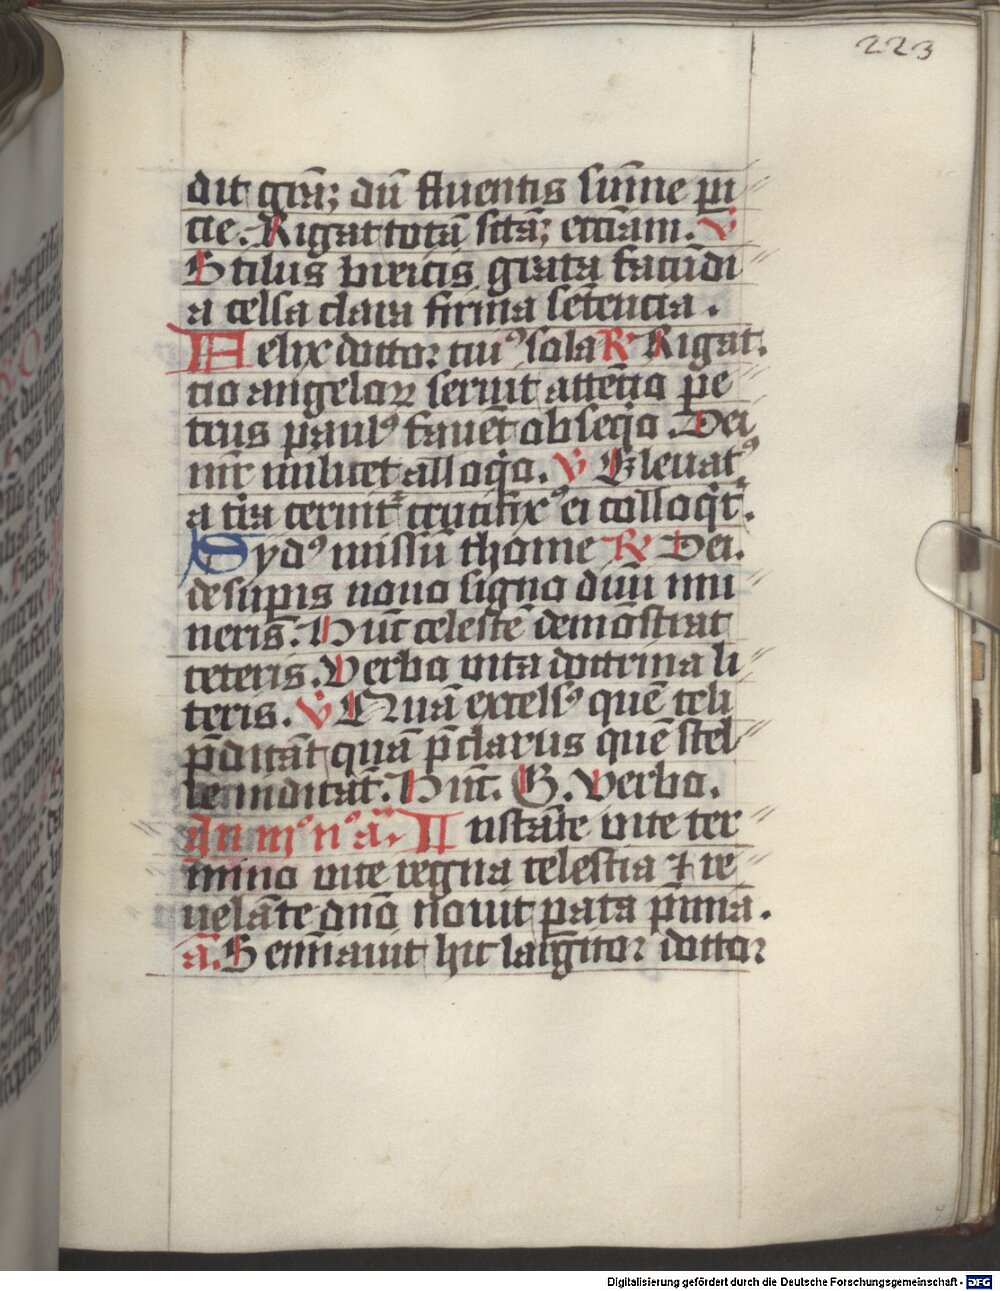 223
dit grāꝫ dū fluentis sūme pi
cie. Rigat totā sctāꝫ ecc̄iam. V
Stilus breuis grata facūdi
a celsa clara firma sētencia.
Felix doctor cuiꝰ sola R Rigat.
cio angeloꝝ seruit attētio pe
trus paulꝰ fauēt obseqͦo. Dei
mr̄ mulcet alloqͦo. V Eleuatꝰ
a tr̄a cernitᷣ crucifixꝰ ei colloqͥt.
Sydꝰ missū thome R Dei.
desup̲is nouo signo diuī mu
neris. Hūc celestē demōstrat
ceteris. Verbo vita doctrina li
teris. V Quā excelsꝰ quē celi
p̄dicāt quā p̄clarus quē stel
le indicāt. Hūc. G. Verbo.
an mͦ nͦ ā. Instāte vite ter
mino vite regna celestia ⁊ re
uelāte dn̄o nouit p̲ata p̄mia.
ā. Semīauit hic largitor doctor
Digitalisierung gefördert durch die Deutsche Forschungsgemeinschaft - DFG